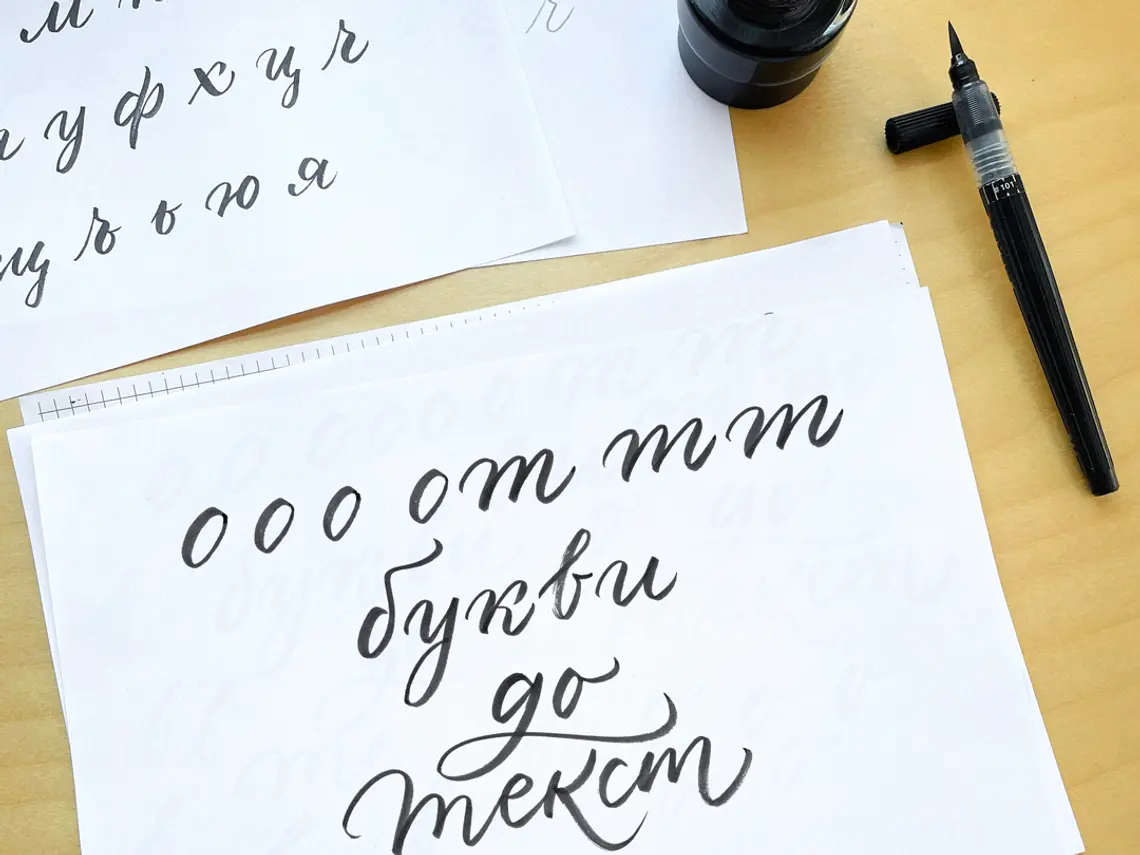 м
у ф х ц ч
щ ъ ь ю я
ч
о о о от т т
букви
до
текст